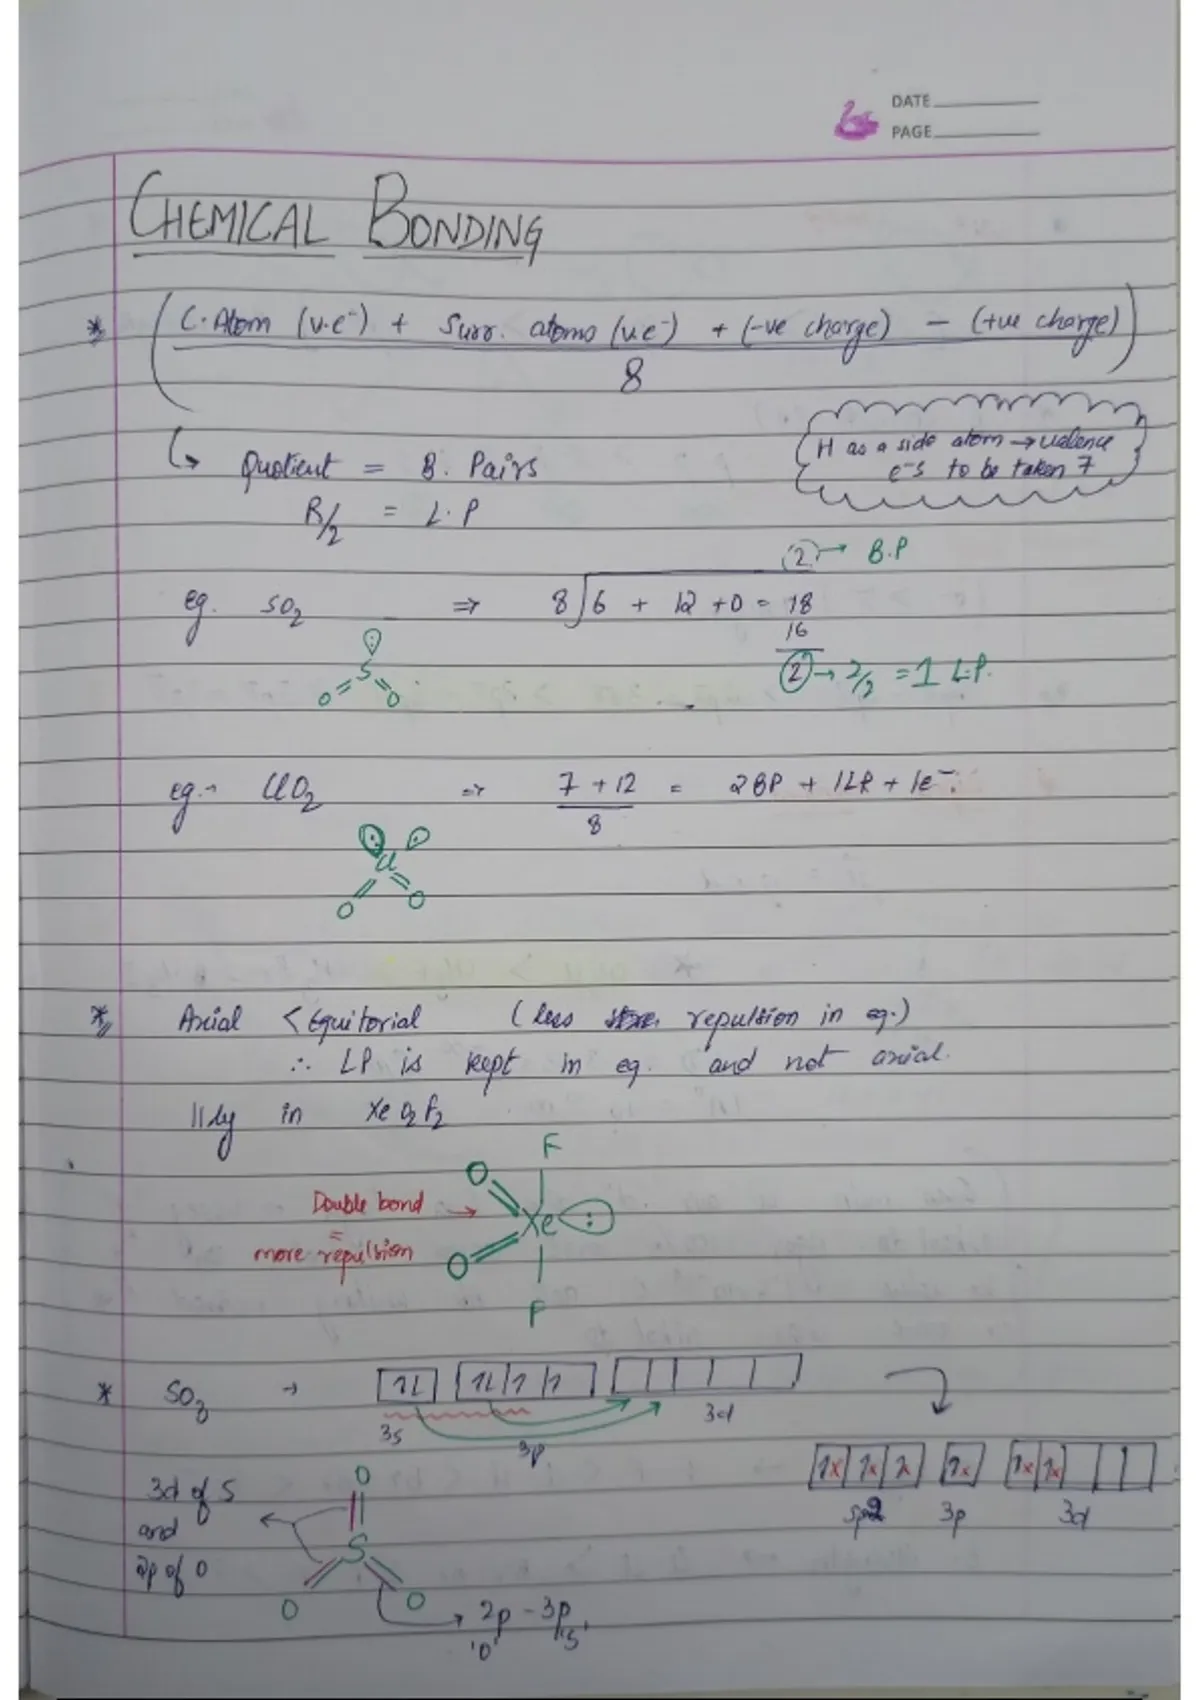 DATE
PAGE
CHEMICAL BONDING
* ( C. Atom (v.e⁻) + Surr. atoms (v.e⁻) + (-ve charge) − (+ve charge) )
8
H as a side atom → valence
e⁻s to be taken 7
↳ Quotient = B. Pairs
R/2 = L.P
2 → B.P
eg. SO₂ ⇒ 8 6 + 12 + 0 = 18
16
2 → 2/2 = 1 L.P.
S
O = O
eg.→ ClO₂ ⇒ 7 + 12 = 2BP + 1LP + 1e⁻.
8
Cl
O O
* Axial < Equitorial (less repulsion in eq.)
∴ LP is kept in eq. and not axial.
llly in XeO₂F₂
F
O
Double bond → Xe :
more repulsion O
F
* SO₃ → 1L 1L 1 1
3s 3p 3d
1x 1x 1x 1x 1x 1x
sp2 3p 3d
O
3d of S
and
S
2p of O
O O
→ 2p - 3p
'O' 'S'